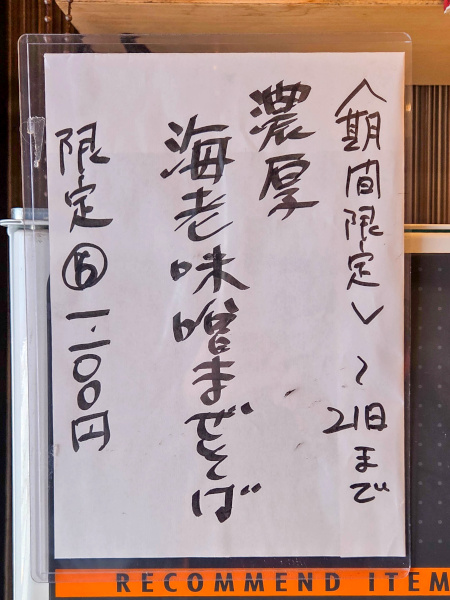 〈期間限定〉～21日まで
濃厚
海老味噌まぜそば
限定⑮ 1.100円
RECOMMEND ITEM